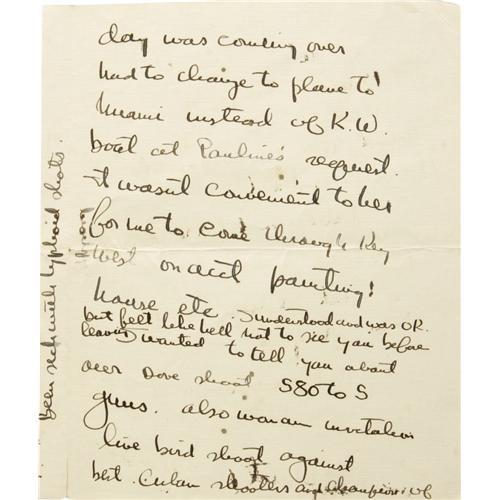 day was coming over
had to change to plane to
Miami instead of K.W.
boat at Pauline's request.
it wasn't convenient to her
for me to come through Key
West on acct painting!
house etc. I understood and was OK.
but felt like hell not to see you before
leaving I wanted to tell you about
our Dove shoot 5 guns. also won an invitation
live bird shoot against
best Cuban shooters and champion of
been sick with typhoid shots.